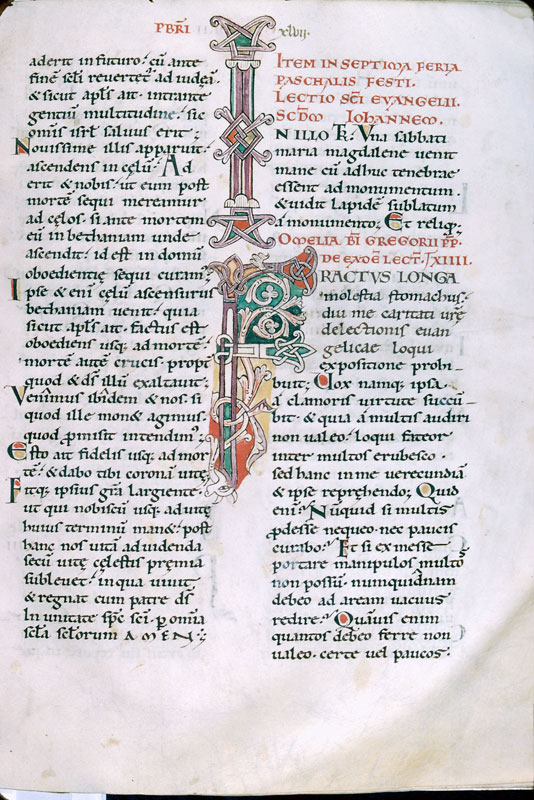 PBRI xlvii.
aderit in futuro. cū ante
finē scłi reverteť ad iudeā.
& sicut aplš ait. intrante
gentiū multitudine. sic
omnis isrł saluus erit;
Novissime illis apparuit.
ascendens in cęlū. Ad
erit & nobis. ut eum post
mortē sequi mereamur
ad cęlos. si ante mortem
eū in bethaniam unde
ascendit. id est in domū
oboedientię sequi curam;
Ipse & enī cęlū ascensurus
bethaniam venit. quia
sicut aplš ait. factus est
oboediens usq; ad mortē.
mortē autē crucis. propt
quod & dš illū exaltavit;
Venimus ibidem & nos. si
quod ille monet agimus.
quod promisit intendim;
Esto ait fidelis usq; ad mor
tē. & dabo tibi coronā vitę;
Fitq; ipsius gra largiente.
ut qui nobiscū usq; ad vitę
huius terminū man&. post
hanc nos vitā ad videnda
secū vitę cęlestis pręmia
sublevet. in qua vivit
& regnat cum patre dš
In unitate spš sci. p omnia
scła scłorum AMEN;
ITEM IN SEPTIMA FERIA
PASCHALIS FESTI.
LECTIO SCI EVANGELII.
SCDM IOHANNEM.
IN ILLO TR. Una sabbati
maria magdalene venit
mane cū adhuc tenebrae
essent ad monumentum.
& vidit lapidē sublatum
a monumento; Et reliq;
OMELIA BI GREGORII PP.
DE EADE LECT.
FRACTUS LONGA
molestia stomachus.
diu me caritati vrę
de lectionis evan
gelicae loqui
expositione prohi-
buit; Vox namq; ipsa
a clamoris virtute succū-
bit. & quia a multis audiri
non valeo. loqui fateor
inter multos erubesco.
sed hanc in me verecundiā
& ipse reprehendo; Quid
enī? Nūquid si multis
pdesse nequeo. nec paucis
curabo? Et si ex messe
portare manipulos multos
non possū. nunquidnam
debeo ad aream vacuus
redire? Quāvis enim
quantos debeo ferre non
valeo. certe vel paucos.